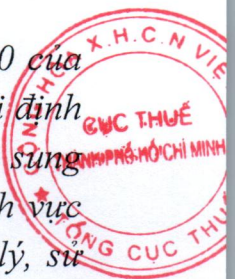 0 của
định
sung
h vực
lý, sử
X.H.C.N VIỆ
CỤC THUẾ
THÀNH PHỐ HỒ CHÍ MINH
TỔNG CỤC THU